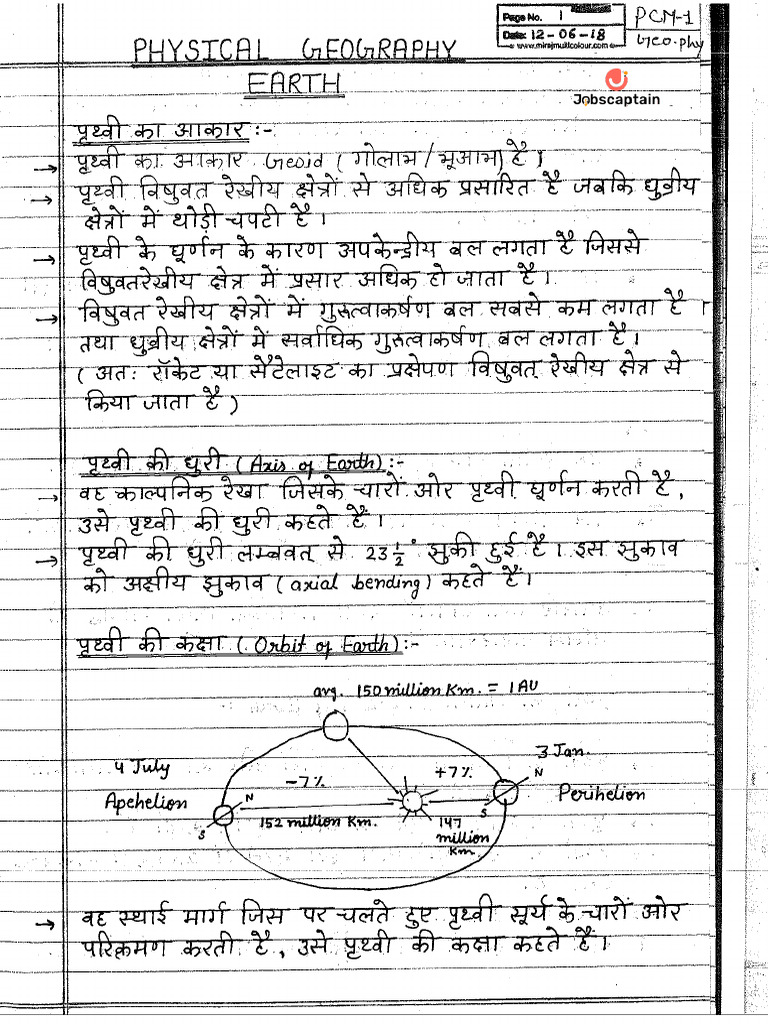 Page No. 1
Date: 12-06-18
www.mirajmulticolour.com
PCM-1
Geo.phy
PHYSICAL GEOGRAPHY
EARTH
Jobscaptain
पृथ्वी का आकार :-
→ पृथ्वी का आकार Geoid ( गोलाभ / भूआभ) है ।
→ पृथ्वी विषुवत रेखीय क्षेत्रों से अधिक प्रसारित है जबकि ध्रुवीय
क्षेत्रों में थोड़ी चपटी है ।
→ पृथ्वी के घूर्णन के कारण अपकेन्द्रीय बल लगता है जिससे
विषुवतरेखीय क्षेत्र में प्रसार अधिक हो जाता है ।
→ विषुवत रेखीय क्षेत्रों में गुरुत्वाकर्षण बल सबसे कम लगता है ।
तथा ध्रुवीय क्षेत्रों में सर्वाधिक गुरुत्वाकर्षण बल लगता है ।
( अतः रॉकेट या सैटेलाइट का प्रक्षेपण विषुवत् रेखीय क्षेत्र से
किया जाता है )
पृथ्वी की धुरी ( Axis of Earth) :-
→ वह काल्पनिक रेखा जिसके चारों ओर पृथ्वी घूर्णन करती है ,
उसे पृथ्वी की धुरी कहते हैं ।
→ पृथ्वी की धुरी लम्बवत् से 23½° झुकी हुई है । इस झुकाव
को अक्षीय झुकाव ( axial bending ) कहते हैं ।
पृथ्वी की कक्षा ( Orbit of Earth) :-
avg. 150 million Km. = 1 AU
4 July
3 Jan.
-7%
+7%
N
N
Apehelion
Perihelion
S
S
152 million Km.
147
million
Km.
→ वह स्थाई मार्ग जिस पर चलते हुए पृथ्वी सूर्य के चारों ओर
परिक्रमण करती है , उसे पृथ्वी की कक्षा कहते हैं ।